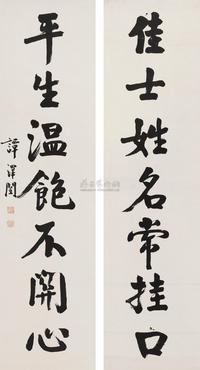 佳士姓名常挂口
平生温飽不關心
譚澤闓